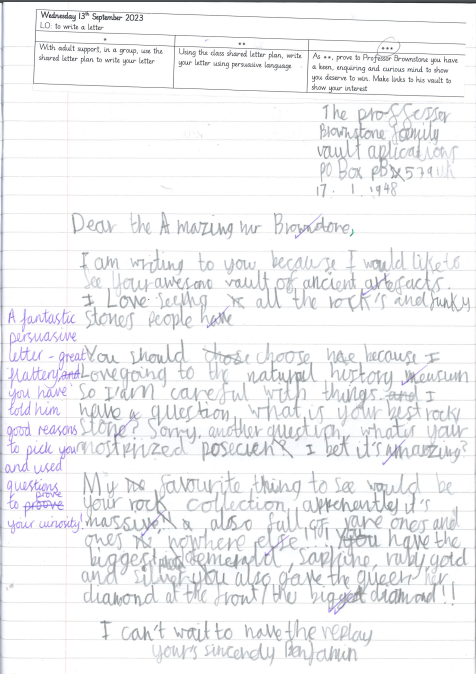 Wednesday 13th September 2023
LO: to write a letter
*
With adult support, in a group, use the shared letter plan to write your letter
**
Using the class shared letter plan, write your letter using persuasive language
***
As **, prove to Professor Brownstone you have a keen, enquiring and curious mind to show you deserve to win. Make links to his vault to show your interest
The proffesser
Brownstone family
vault aplications
PO Box PBX579UK
17. 1. 1948
Dear the Amazing mr Brownstone,
I am writing to you because I would like to
see your awesome vault of ancient artefacts.
I Love seeing all the rock's and funky
stones people have
You should choose me because I
Love going to the natural history museum
so I am careful with things. and I
have a question, what is your best rocky
stone? Sorry, another question what is your
most prized I bet it's amazing?
My favourite thing to see would be
your rock collection apprehently it's
massive, also full of rare ones and
ones nowhere else!!! You have the
biggest emerald, sapphire, ruby gold
and silver you also gave the queen her
diamond at the front / the biggest diamond!!
I can't wait to have the replay
yours sincerely Benjamin
A fantastic
persuasive
letter - great
flattery, and
you have
told him
good reasons
to pick you
and used
questions
to prove
your curiosity!